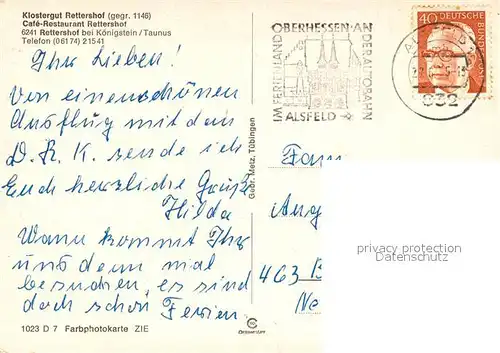 Klostergut Rettershof (gegr. 1146)
Café-Restaurant Rettershof
6241 Rettershof bei Königstein / Taunus
Telefon (06174) 21541
Ihr Lieben!
Von einem schönen
Ausflug mit dem
D. R. K. sende ich
Euch herzliche Grüße
Hilda
Wann kommt Ihr
uns denn mal
besuchen, es sind
doch schon Ferien.
1023 D 7 Farbphotokarte ZIE
Gebr. Metz, Tübingen
IM FERIENLAND OBERHESSEN · AN DER AUTOBAHN
ALSFELD
40 DEUTSCHE BUNDESPOST
Fam
Aug
463 B
Ne
privacy protection
watermark